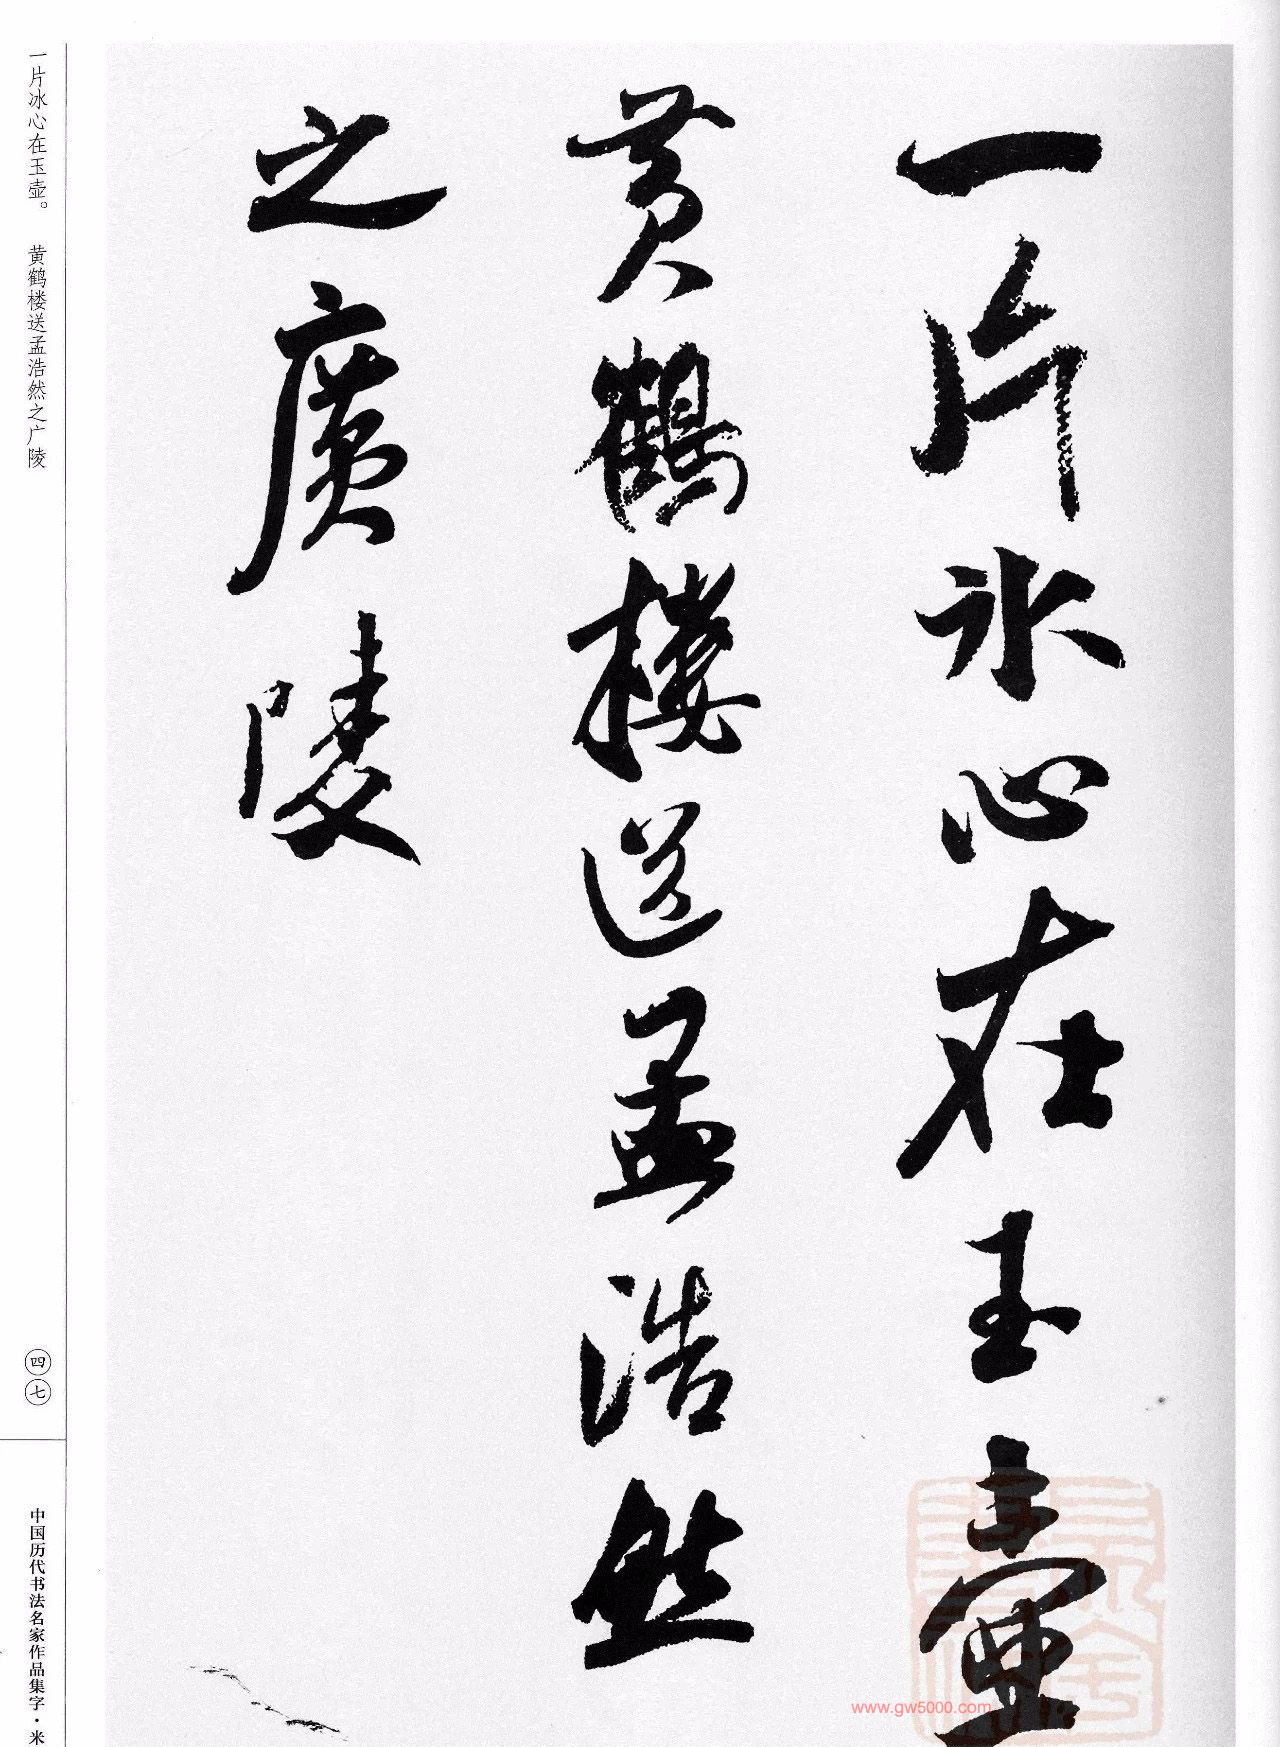 一片冰心在玉壺
黄鶴樓送孟浩然
之廣陵
一片冰心在玉壶。 黄鹤楼送孟浩然之广陵
四七
中国历代书法名家作品集字·米
www.gw5000.com